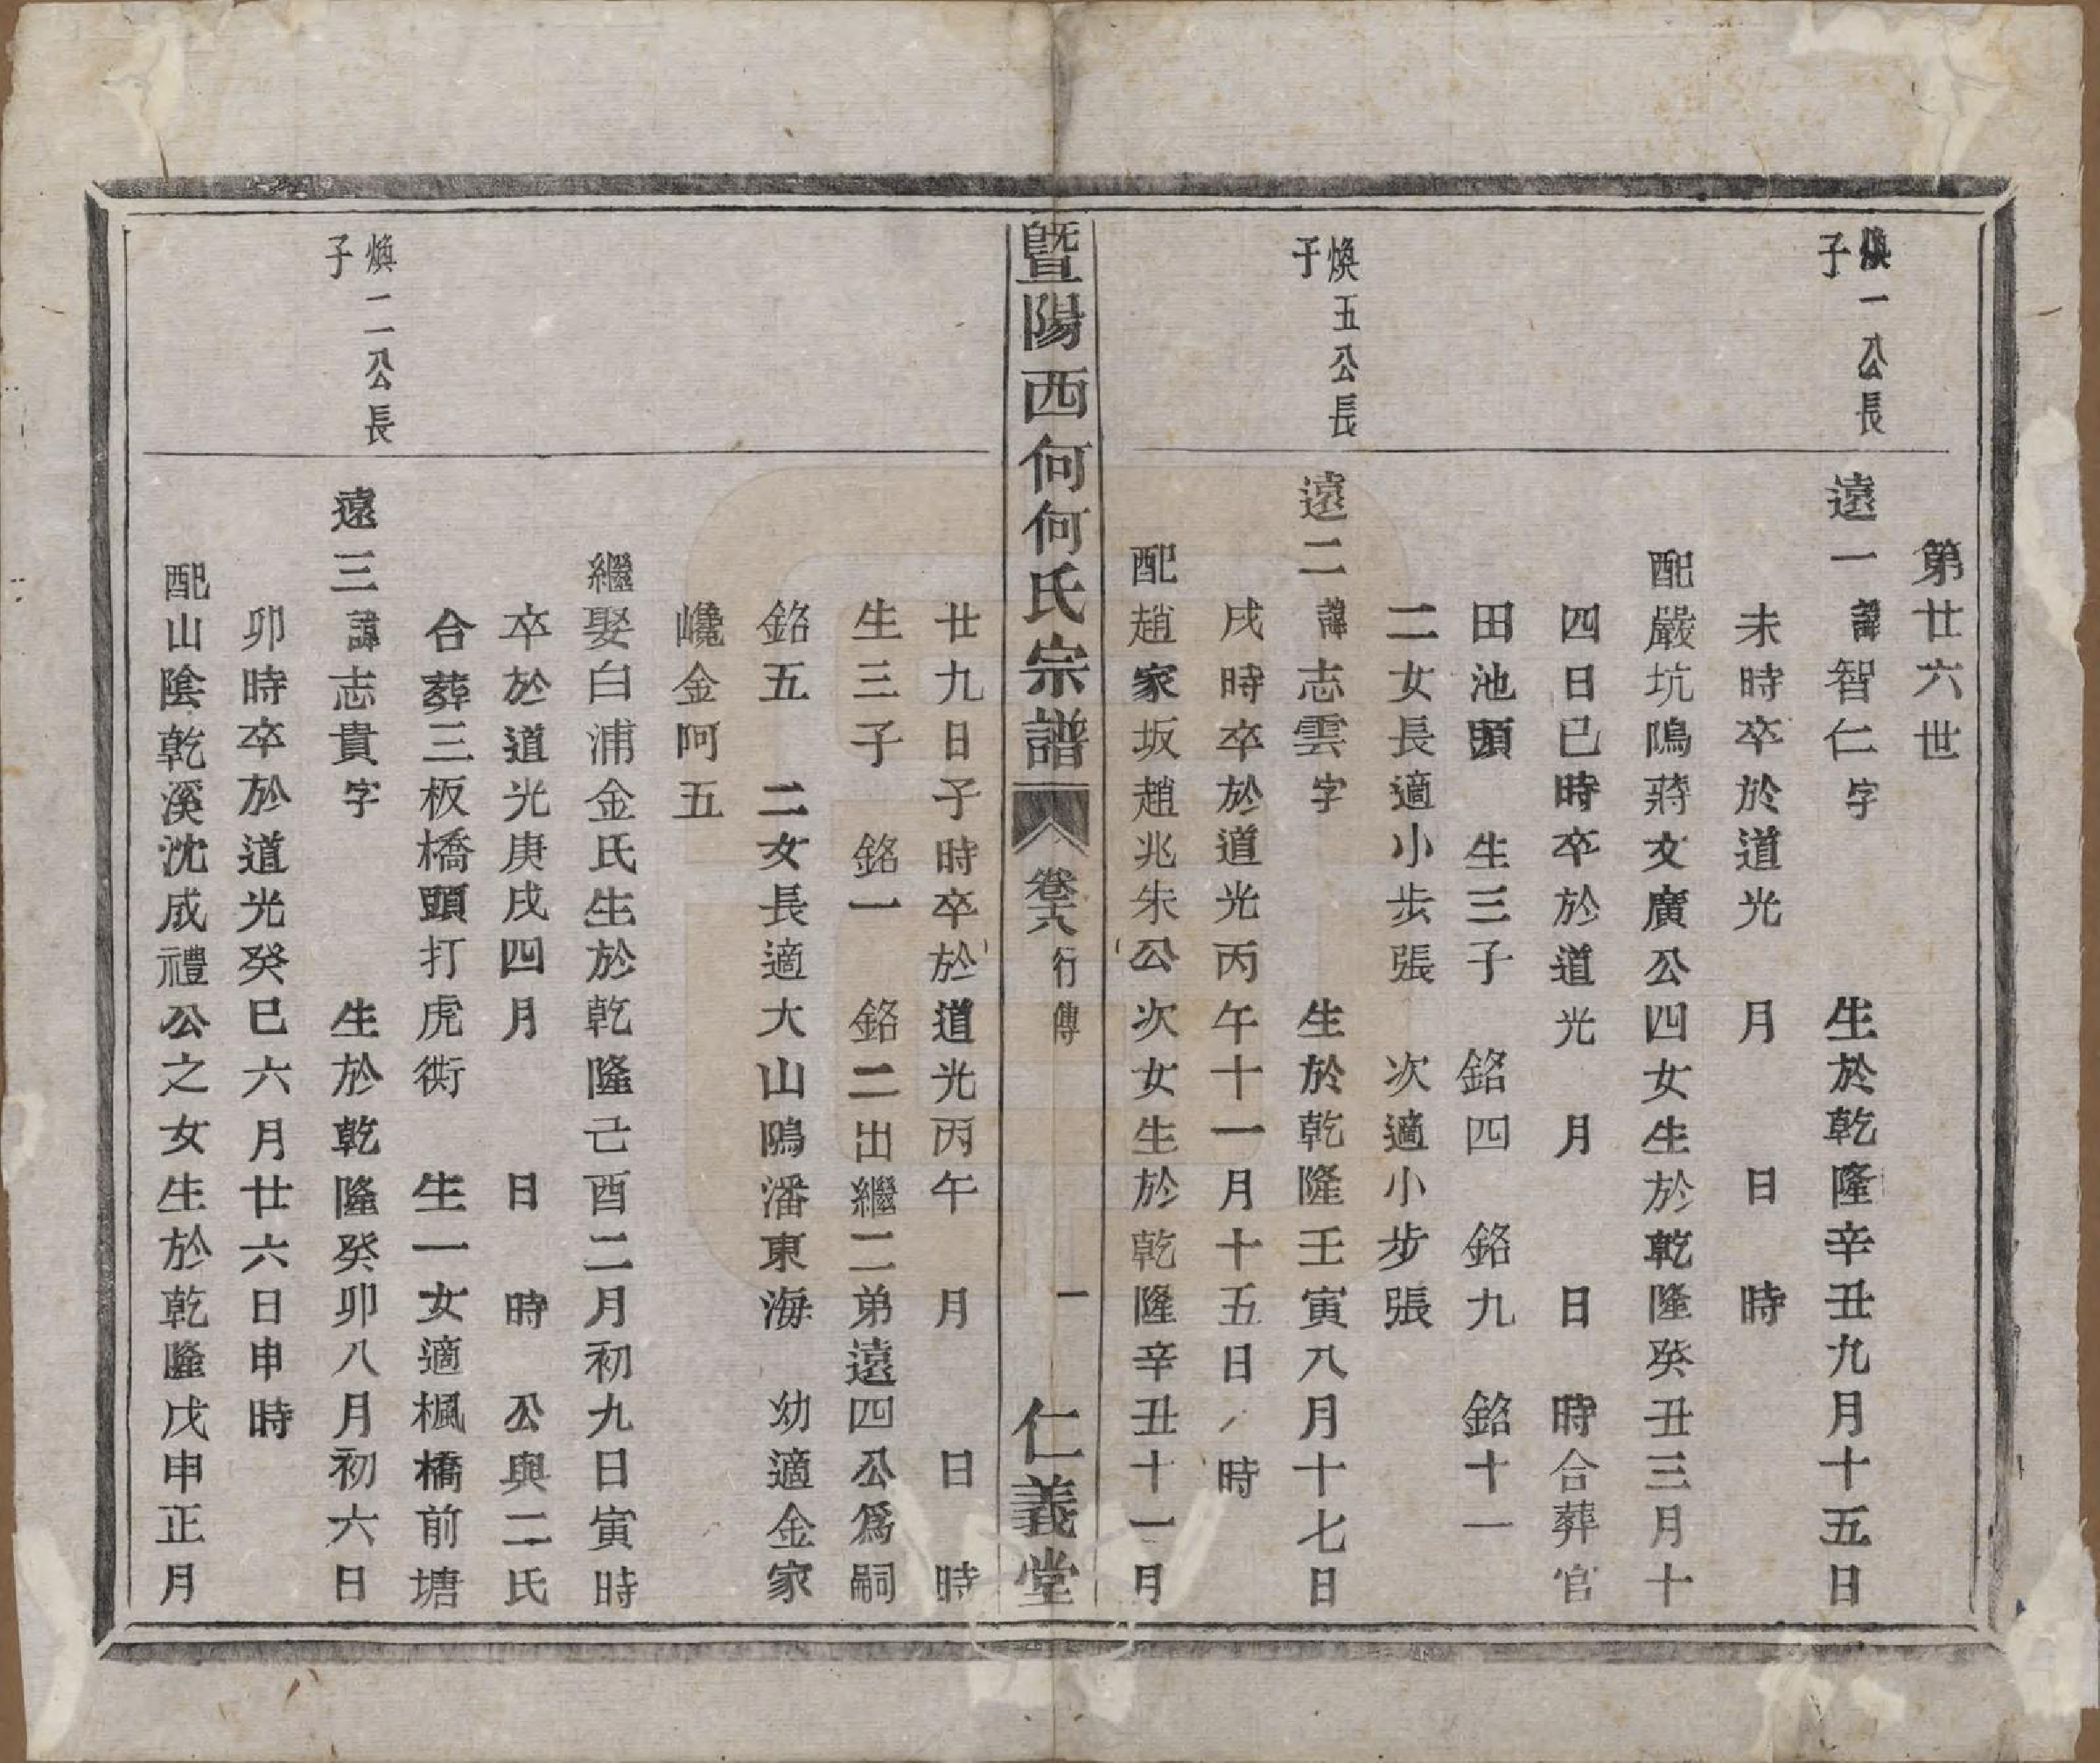 第廿六世
煥一公長
子
遠一諱智仁字 生於乾隆辛丑九月十五日
未時卒於道光 月 日 時
配嚴坑塢蔣文廣公四女生於乾隆癸丑三月十
四日巳時卒於道光 月 日 時合葬官
田池頭 生三子 銘四 銘九 銘十一
二女長適小步張 次適小步張
煥五公長
子
遠二諱志雲字 生於乾隆壬寅八月十七日
戌時卒於道光丙午十一月十五日 時
配趙家坂趙兆朱公次女生於乾隆辛丑十一月
暨陽西何何氏宗譜 卷六 行傳 一 仁義堂
廿九日子時卒於道光丙午 月 日 時
生三子 銘一 銘二出繼二弟遠四公爲嗣
銘五 二女長適大山塢潘東海 幼適金家
巉金阿五
繼娶白浦金氏生於乾隆己酉二月初九日寅時
卒於道光庚戌四月 日 時 公與二氏
合葬三板橋頭打虎衖 生一女適楓橋前塘
煥二公長
子
遠三諱志貴字 生於乾隆癸卯八月初六日
卯時卒於道光癸巳六月廿六日申時
配山陰乾溪沈成禮公之女生於乾隆戊申正月